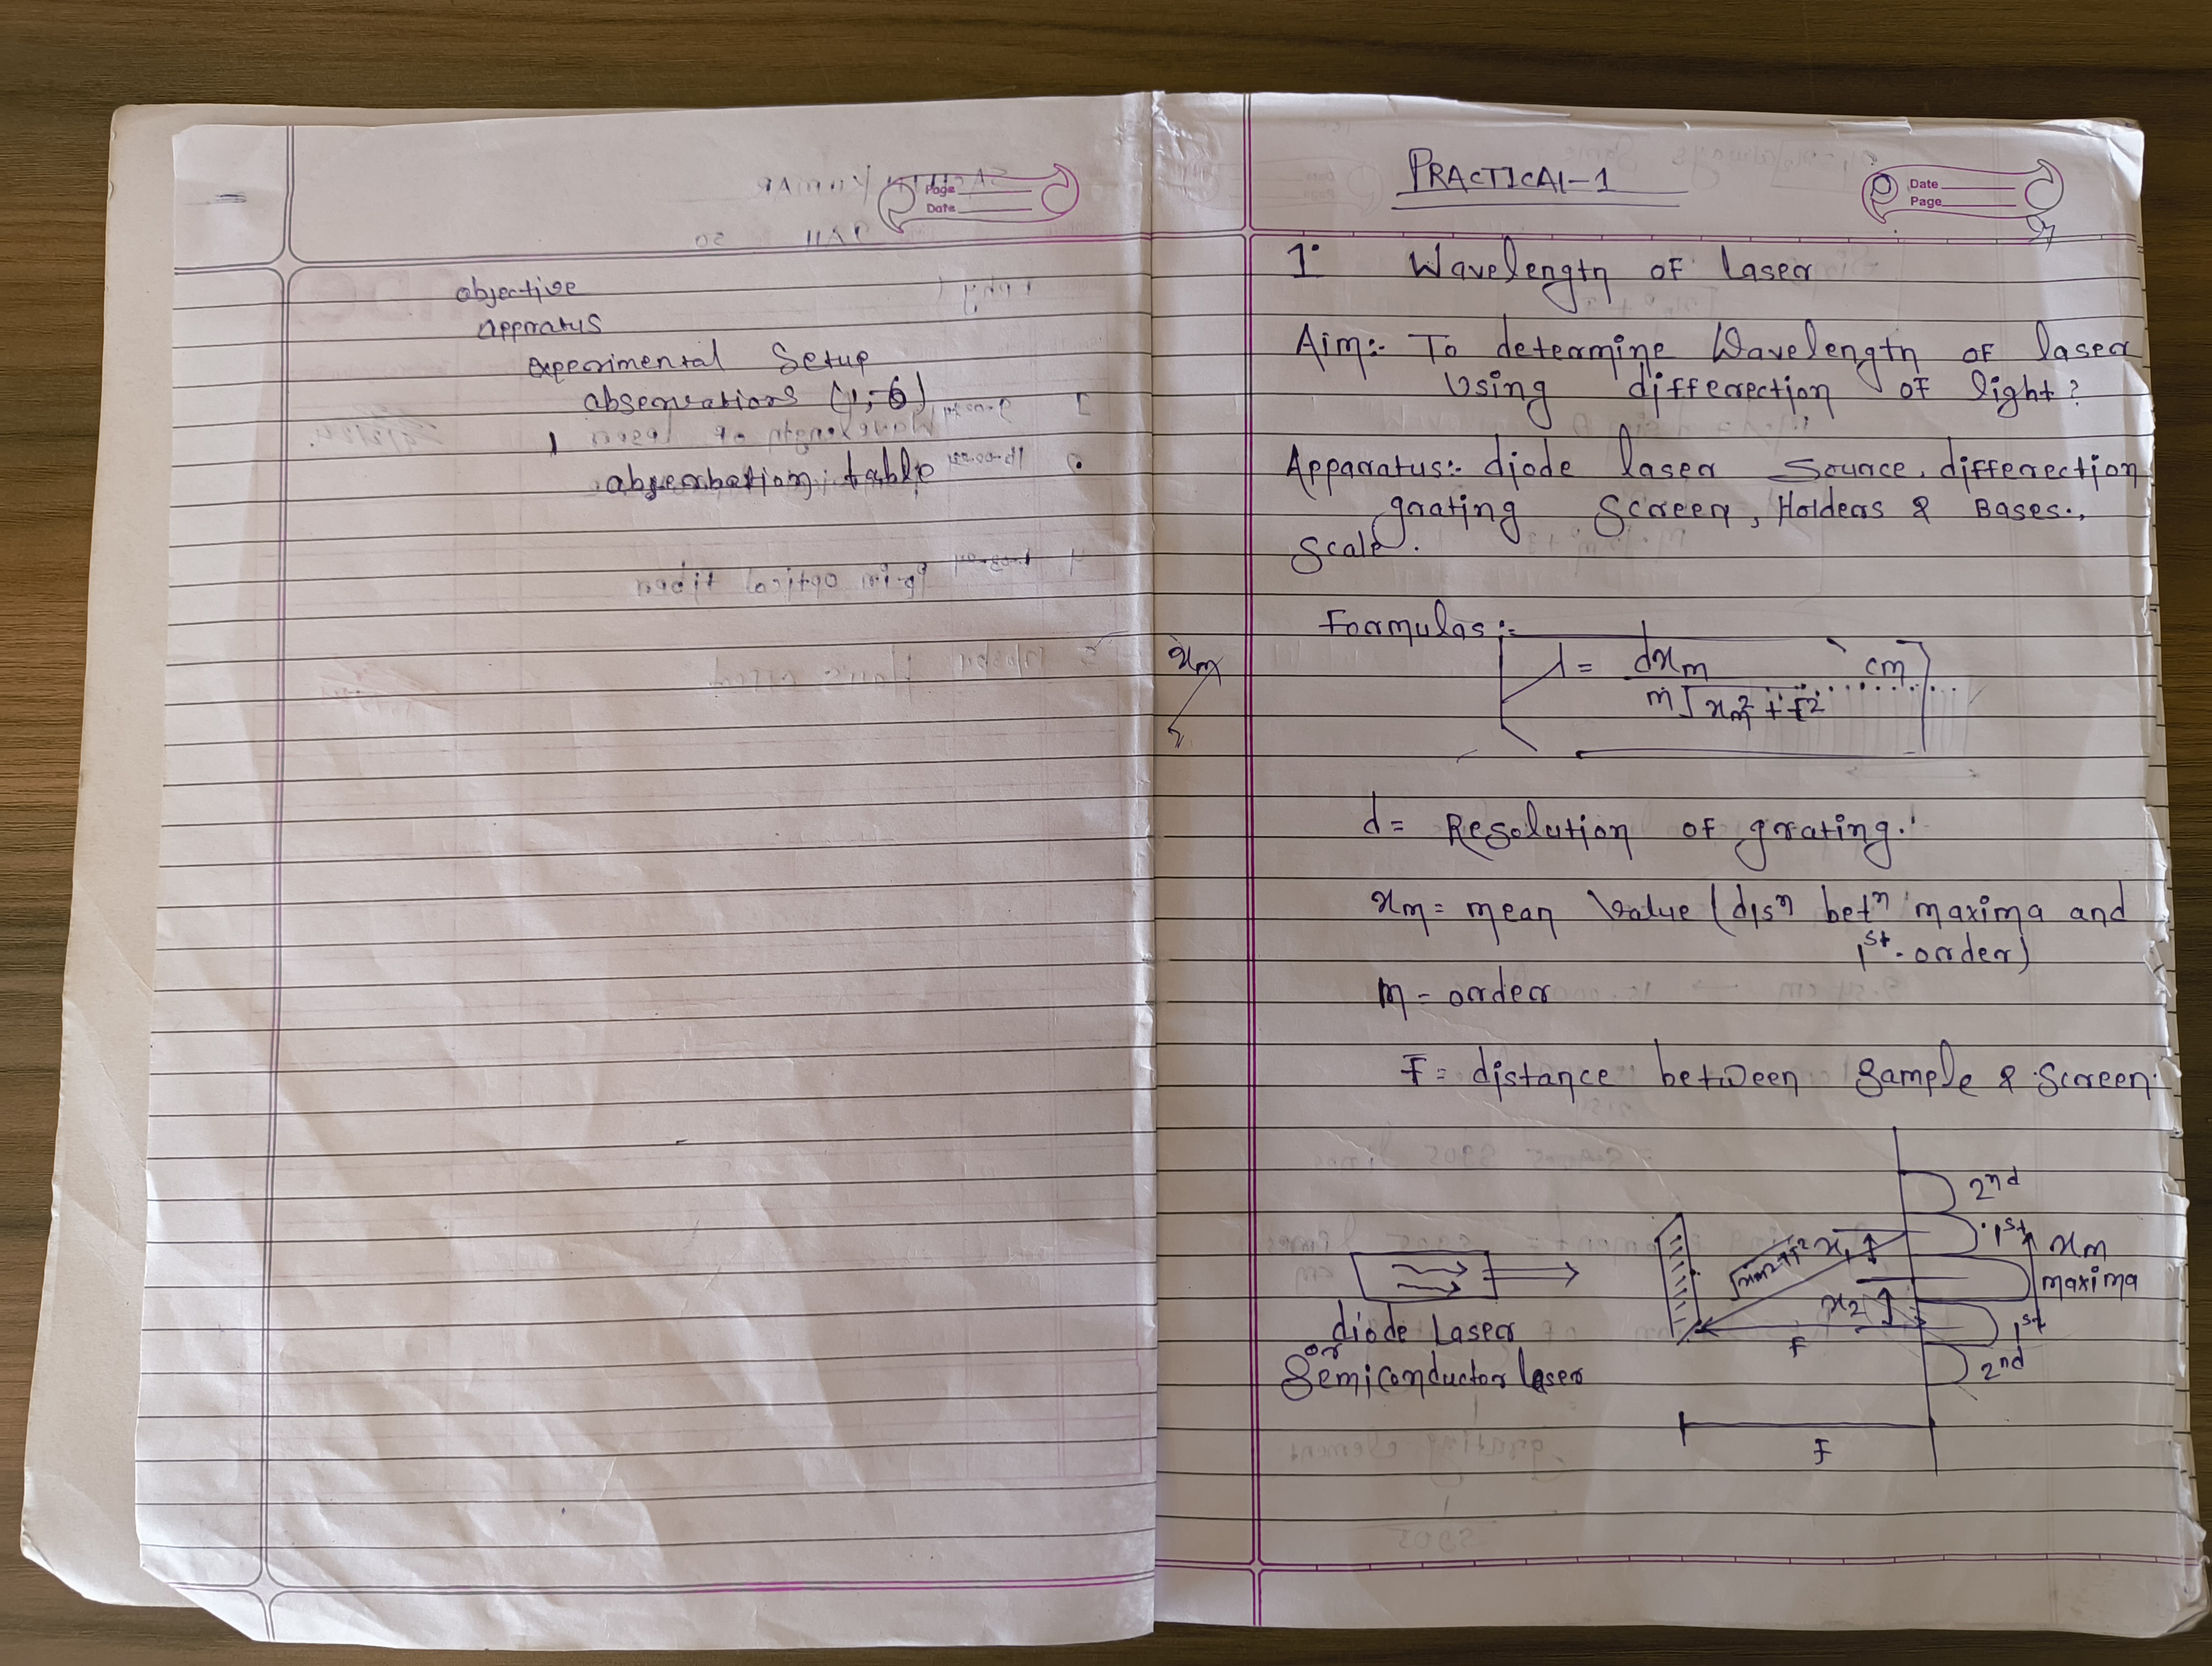 Page
Date
objective
Appratus
experimental Setup
observations (1,-6)
observation table
PRACTICAL-1
Date
Page
1. Wavelength of laser
Aim:- To determine Wavelength of laser
Using differection of light?
Apparatus:- diode laser source, differection
grating Screen, Holders & Bases.,
Scale.
Formulas :-
λ = dxm cm
m√xm² + f²
xm
d = Resolution of grating.
xm = mean value (disⁿ betⁿ maxima and
1st. order)
m - order
F = distance between Sample & Screen.
2nd
1st
√xm²+f² x1
xm
maxima
x2
1st
F
2nd
diode Laser
or
Semiconductor laser
F